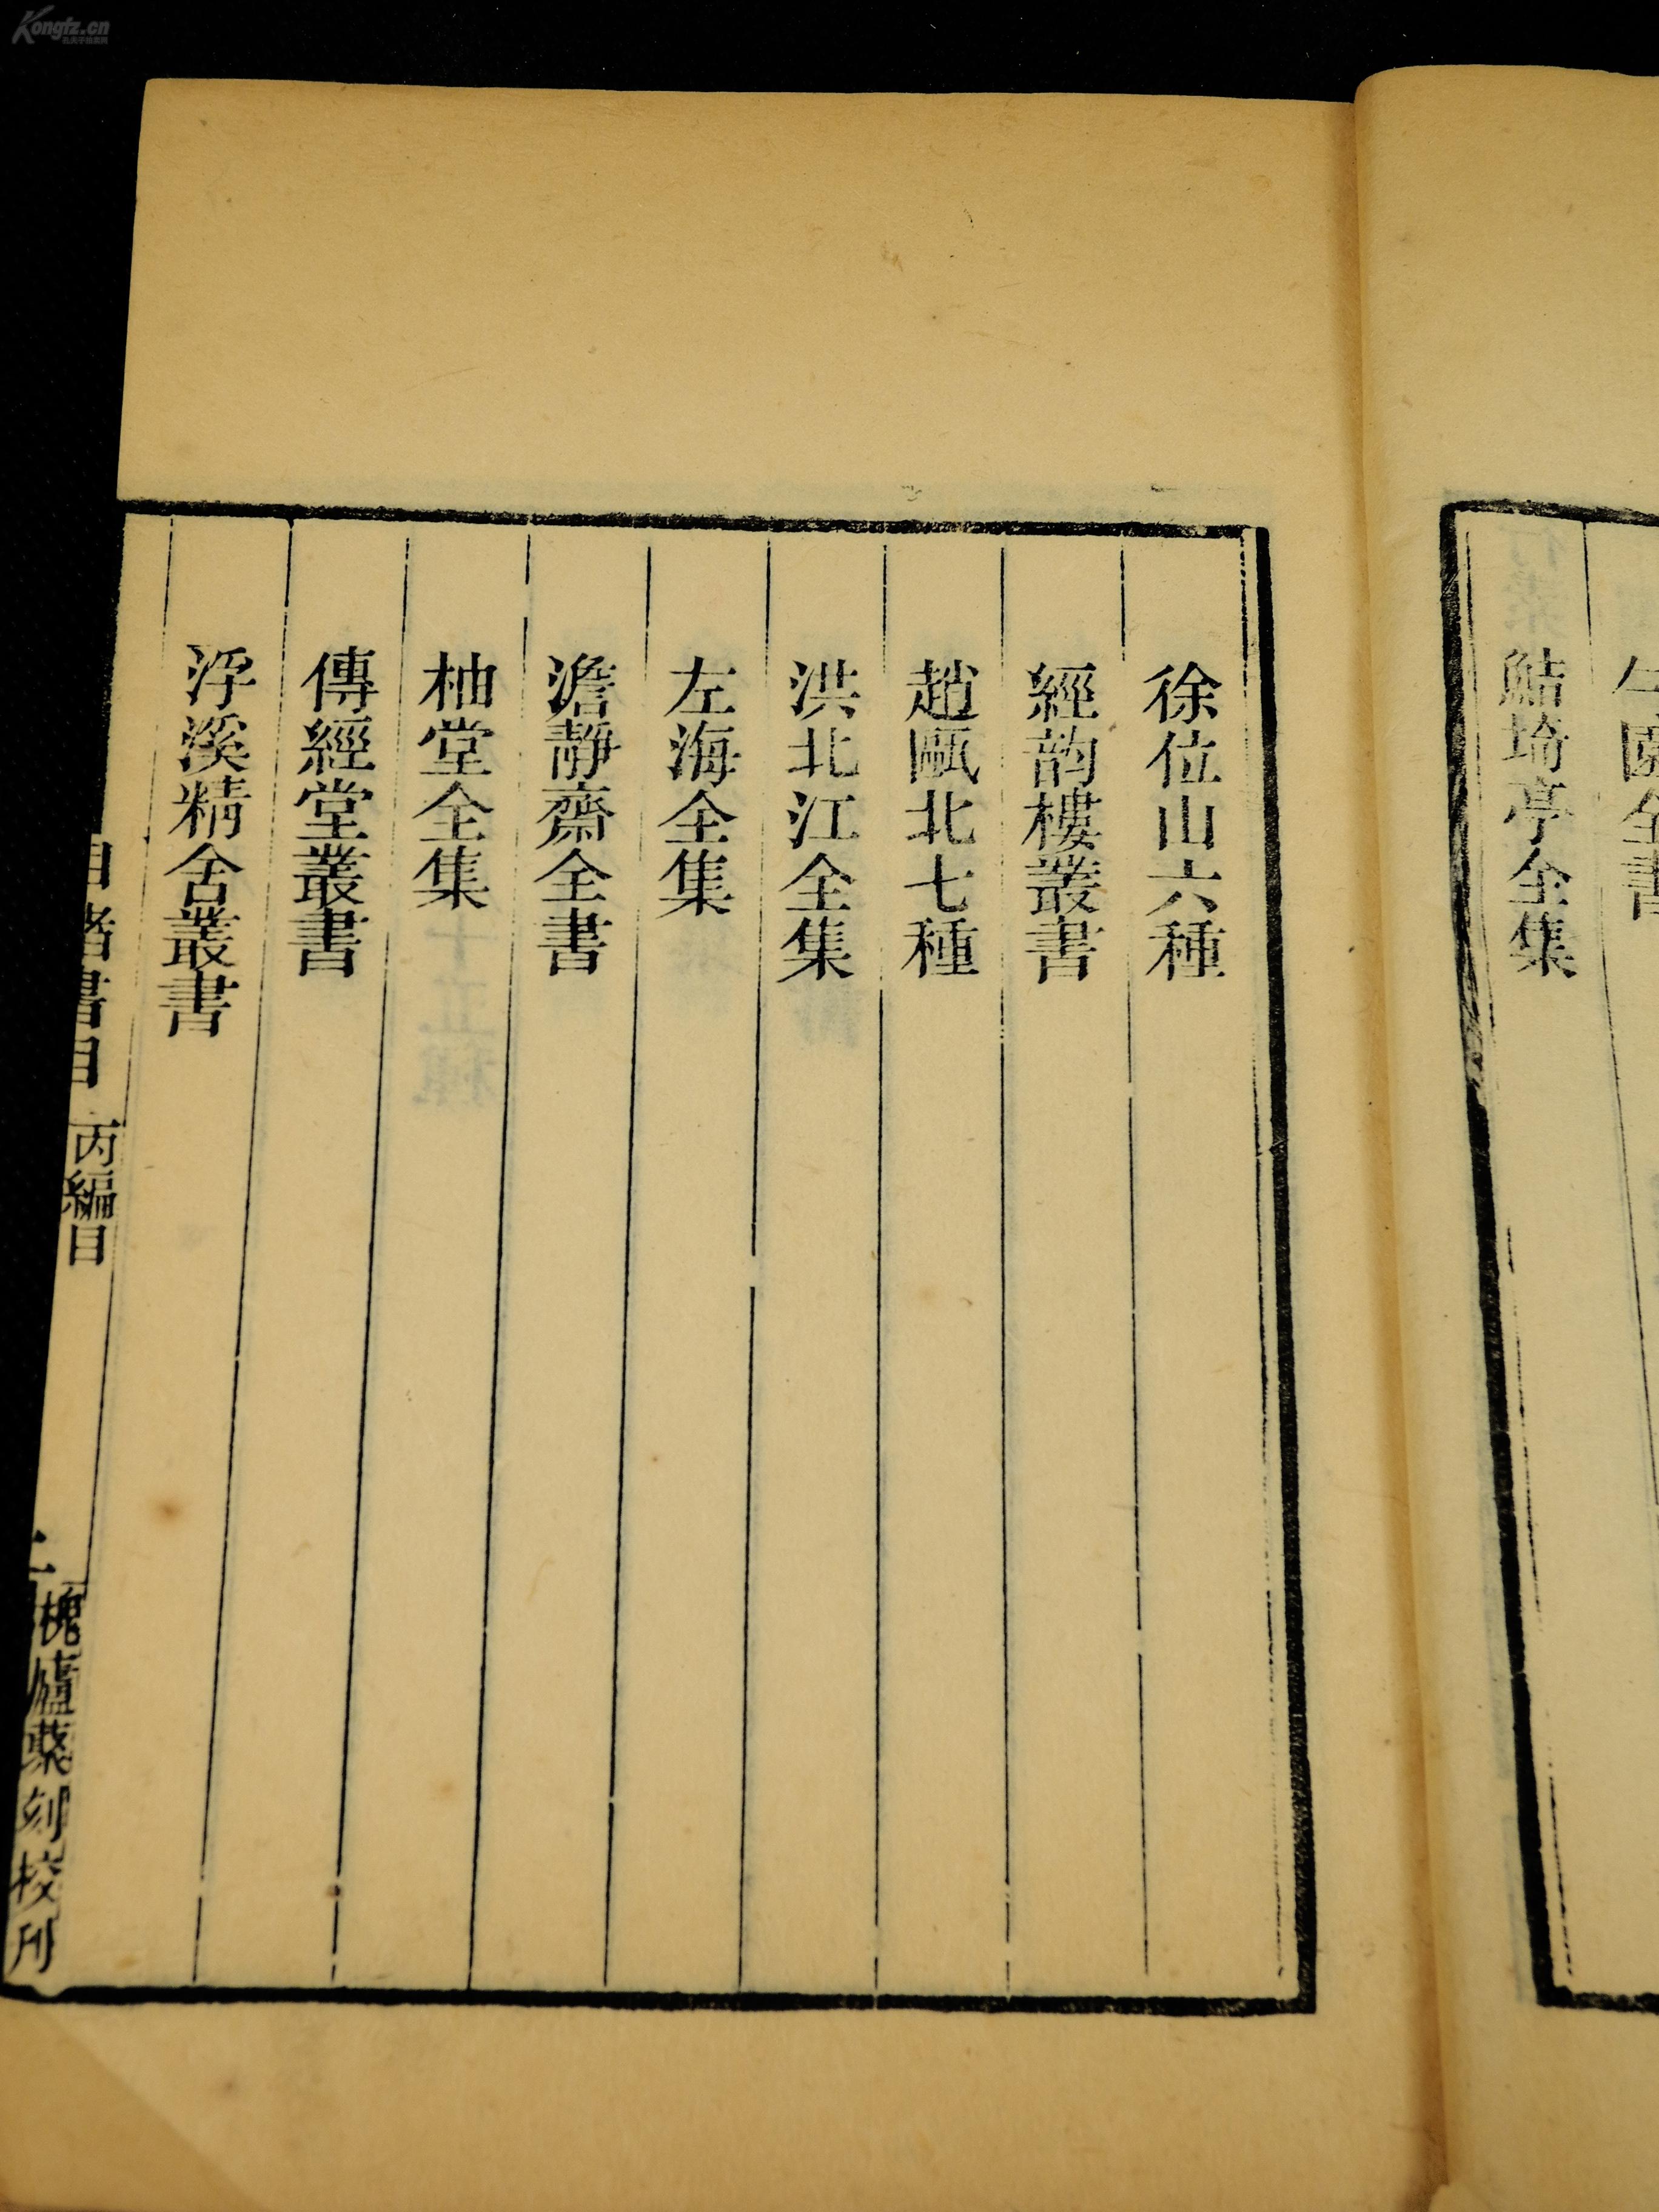 Kongfz.cn
午園全書
鮚埼亭全集
徐位山六種
經韵樓叢書
趙甌北七種
洪北江全集
左海全集
澹靜齋全書
柚堂全集
傳經堂叢書
浮溪精舍叢書
目睹書目 丙編目
槐廬叢刻校刊